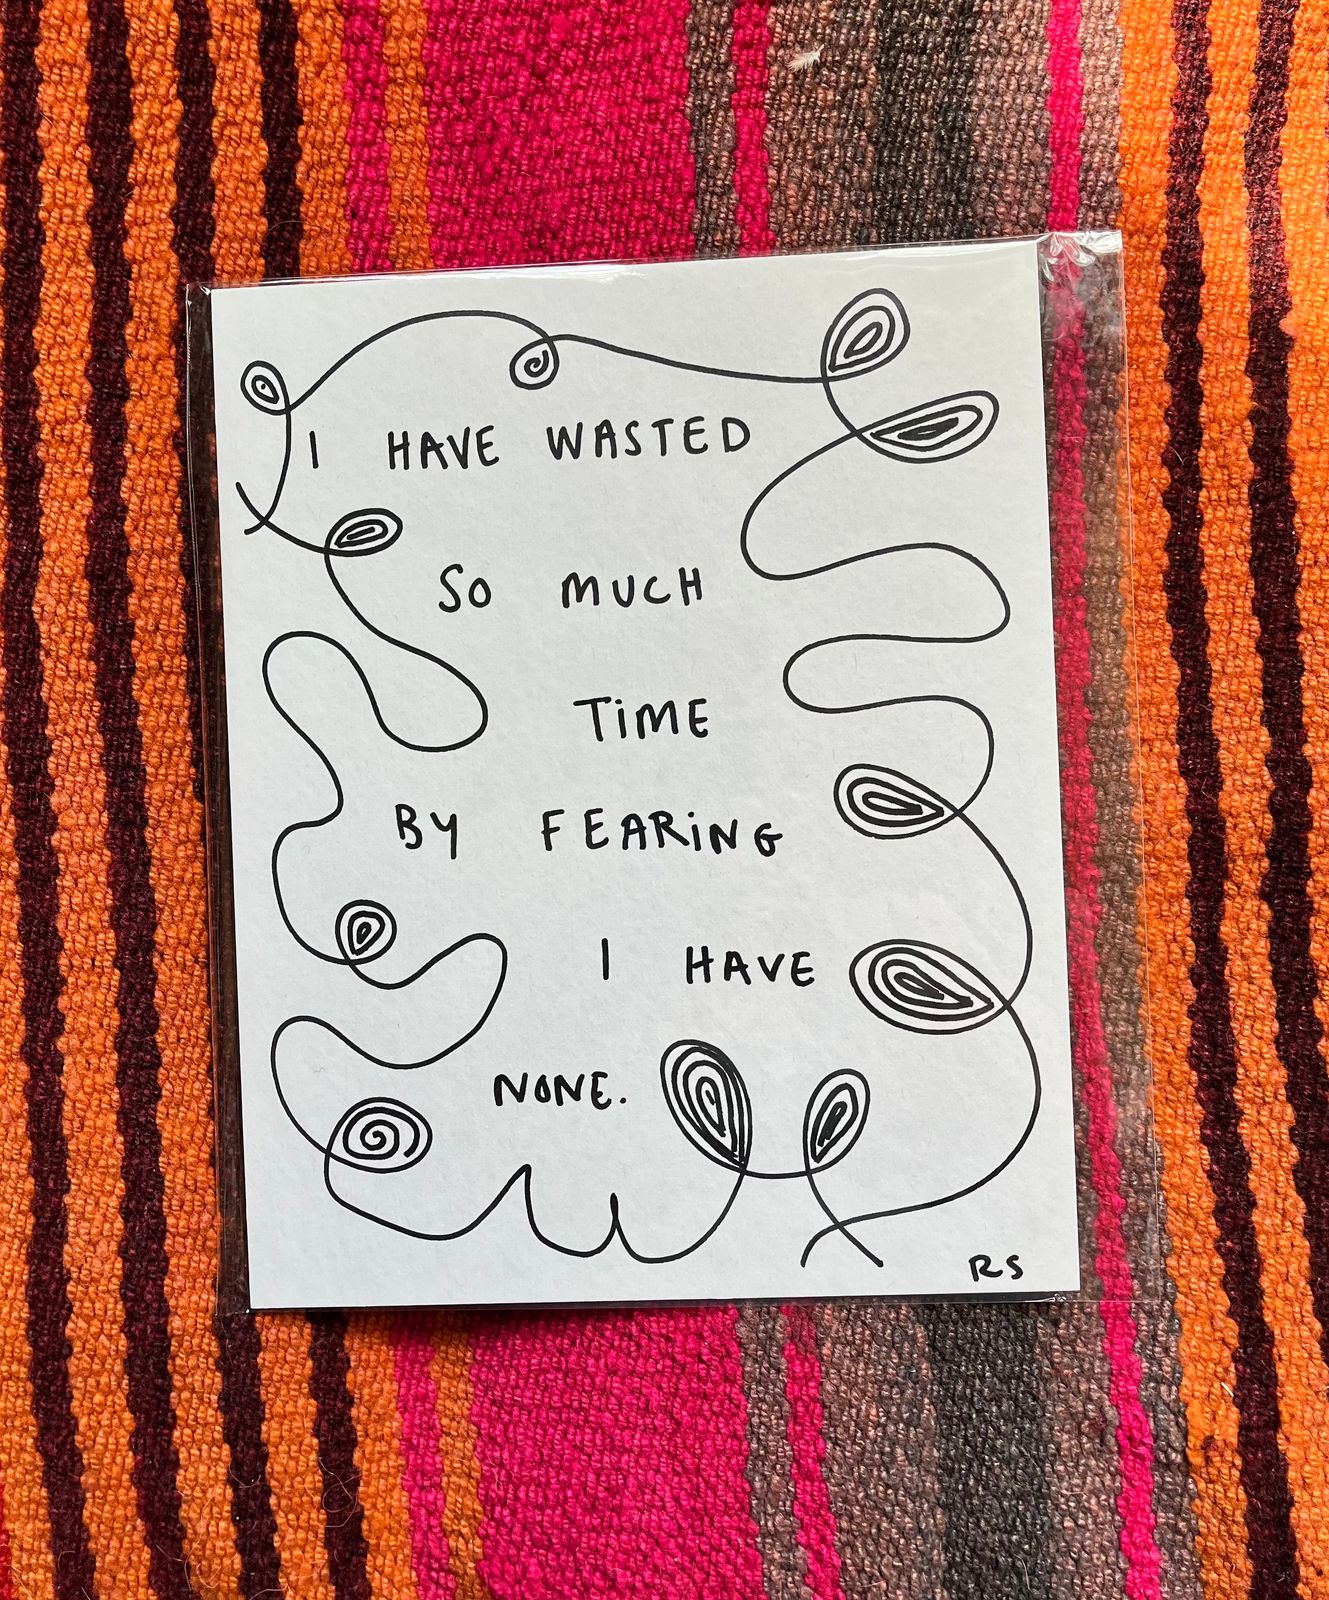 I HAVE WASTED
SO MUCH
TiME
BY FEARiNG
I HAVE
NONE.
RS